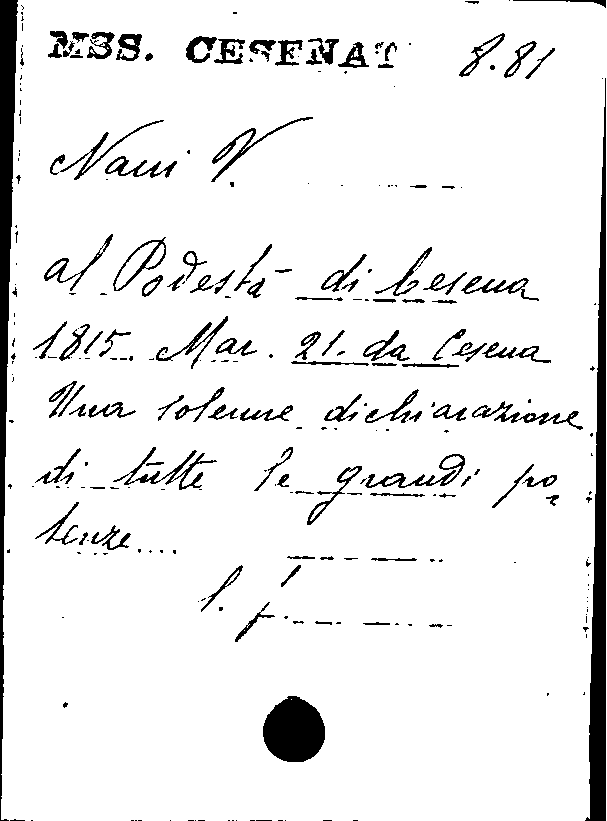 MSS. CESENAT 8.81
Nani V.
al Podestà di Cesena
1815. Mar. 21. da Cesena
Una solenne dichiarazione
di tutte le grandi po
tenze....
l. f.